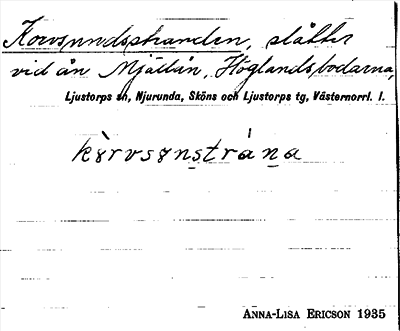 Korvsundsstranden, slåtter
vid ån Mjällån, Höglandsbodarna,
Ljustorps sn, Njurunda, Sköns och Ljustorps tg, Västernorrl. l.
kòrvsònstràna
ANNA-LISA ERICSON 1935